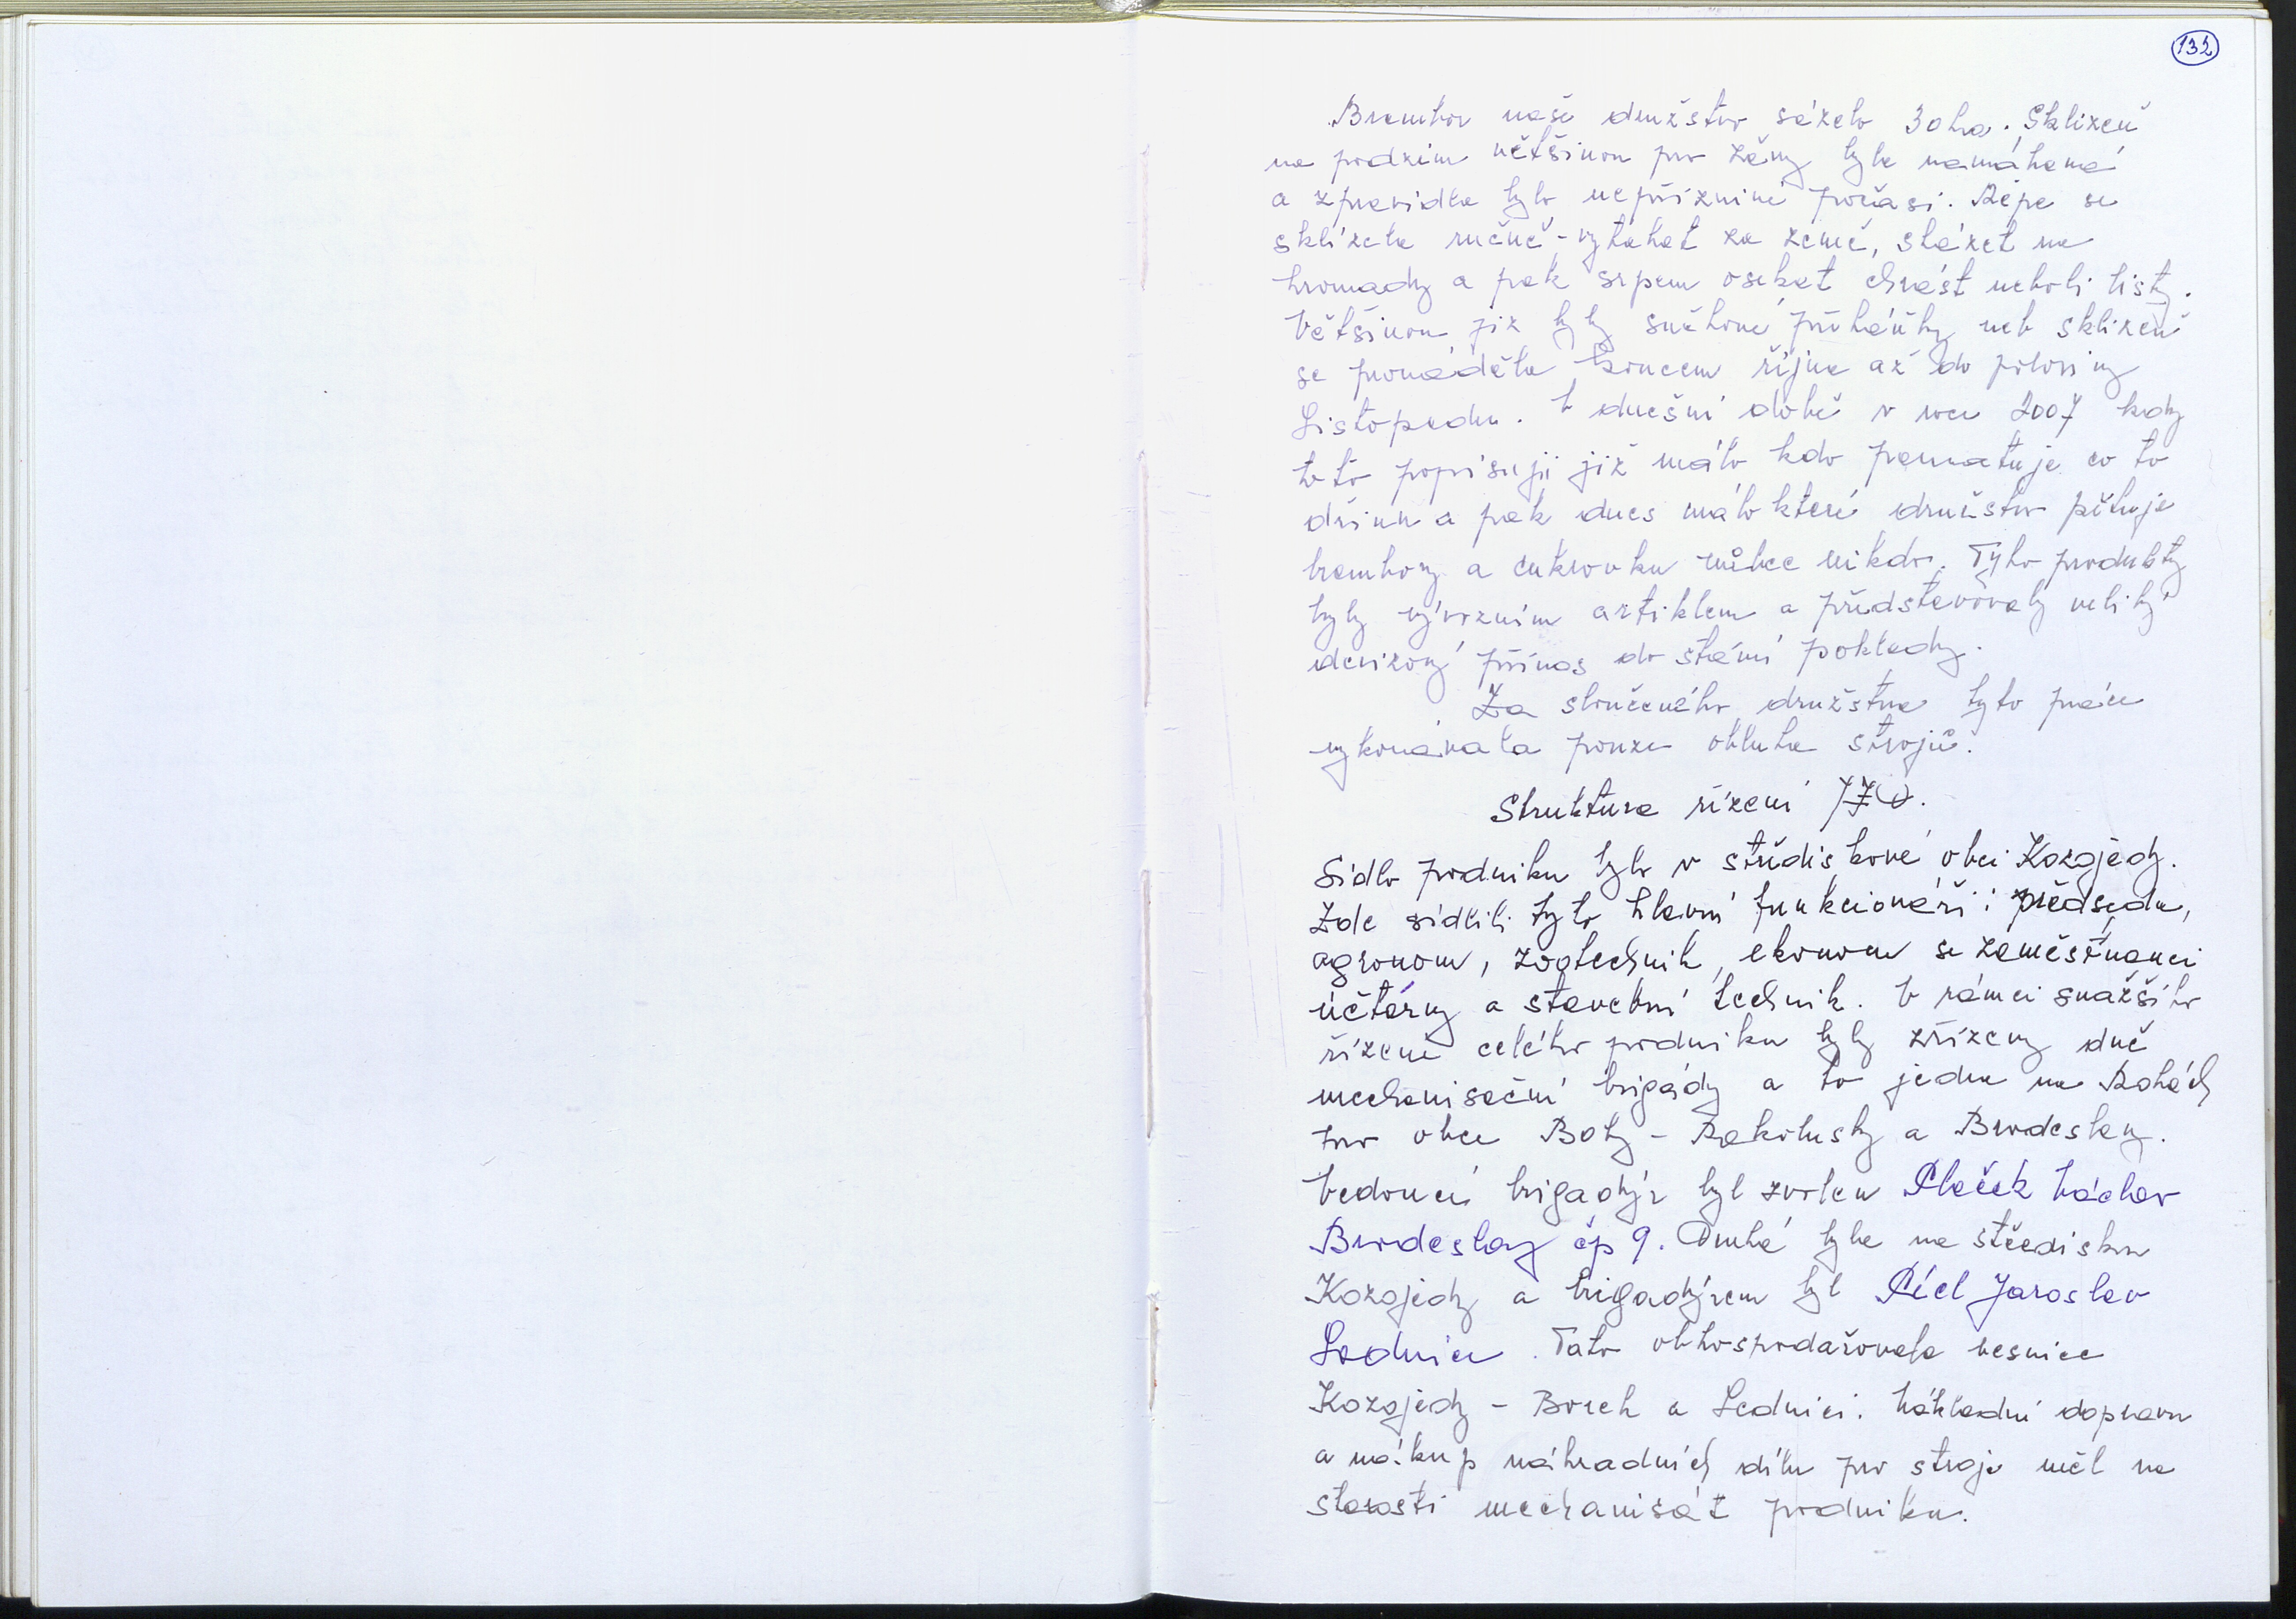 132
Brambor naše družstvo sázelo 30ha. Sklizeň
na podzim většinou pro ženy byla namáhavá
a zpravidla bylo nepříznivé počasí. Řepa se
sklízela ručně - vytahat ze země, skázet na
hromady a pak srpem osekat chrást neboli listy.
Většinou již byly sněhové přeháňky neb sklizeň
se prováděla koncem října až do poloviny
Listopadu. V dnešní době v roce 2007 kdy
toto popisuji již málo kdo pamatuje co to
dřinu a pak dnes málo které družstvo pěstuje
brambory a cukrovku vůbec nikdo. Tyto produkty
byly vývozním artiklem a představovaly veliký
devizový přínos do státní pokladny.
Za sloučeného družstva tyto práce
vykonávala pouze obluha strojů.
Struktura řízení JZD.
Sídlo podniku bylo v střediskové obci Kozojedy.
Zde sídlili tyto hlavní funkcionáři: předseda,
agronom, zootechnik, ekonom se zaměstnanci
účtárny a stavební technik. V rámci snažšího
řízení celého podniku byly zřízeny dvě
mechanisační brigády a to jedna na Rohách
pro obce Bohy - Rakolusky a Brodeslavy.
Vedoucí brigadýr byl zvolen Plaček Václav
Brodeslavy čp 9. Druhá byla na středisku
Kozojedy a brigadýrem byl Pécl Jaroslav
Lednice. Tato obhospodařovala vesnice
Kozojedy - Borek a Lednici. Nákladní dopravu
a nákup náhradních dílu pro stroje měl na
starosti mechanisát podniku.